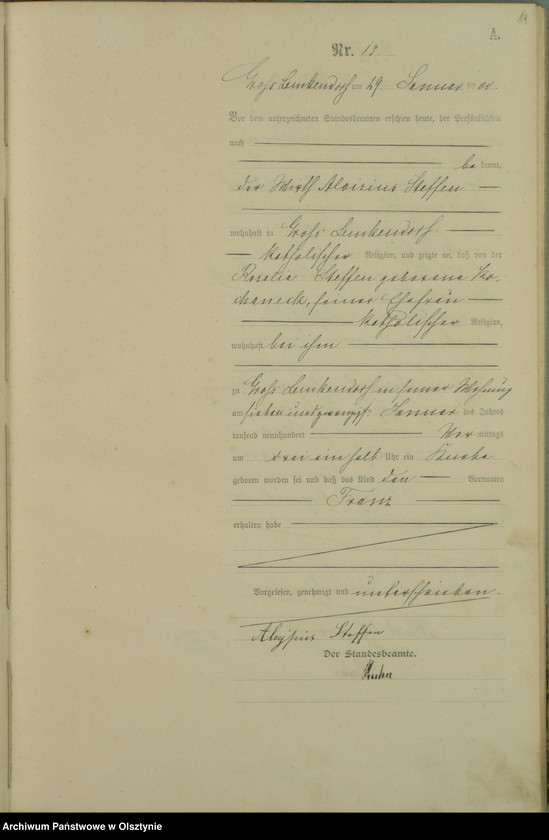 14
A.
Nr. 13
Groß Lemkendorf am 29. Januar 1900.
Vor dem unterzeichneten Standesbeamten erschien heute, der Persönlichkeit
nach
be kannt,
der Wirth Aloisius Steffen
wohnhaft in Groß Lemkendorf
katholischer Religion, und zeigte an, daß von der
Rosalie Steffen geborene Ko-
chaneck, seiner Ehefrau
katholischer Religion,
wohnhaft bei ihm
zu Groß Lemkendorf in seiner Wohnung
am sieben und zwanzigst. Januar des Jahres
tausend neunhundert Vor mittags
um drei ein halb Uhr ein Knabe
geboren worden sei und daß das Kind den Vornamen
Franz
erhalten habe
Vorgelesen, genehmigt und unterschrieben.
Aloysius Steffen
Der Standesbeamte.
Archiwum Państwowe w Olsztynie